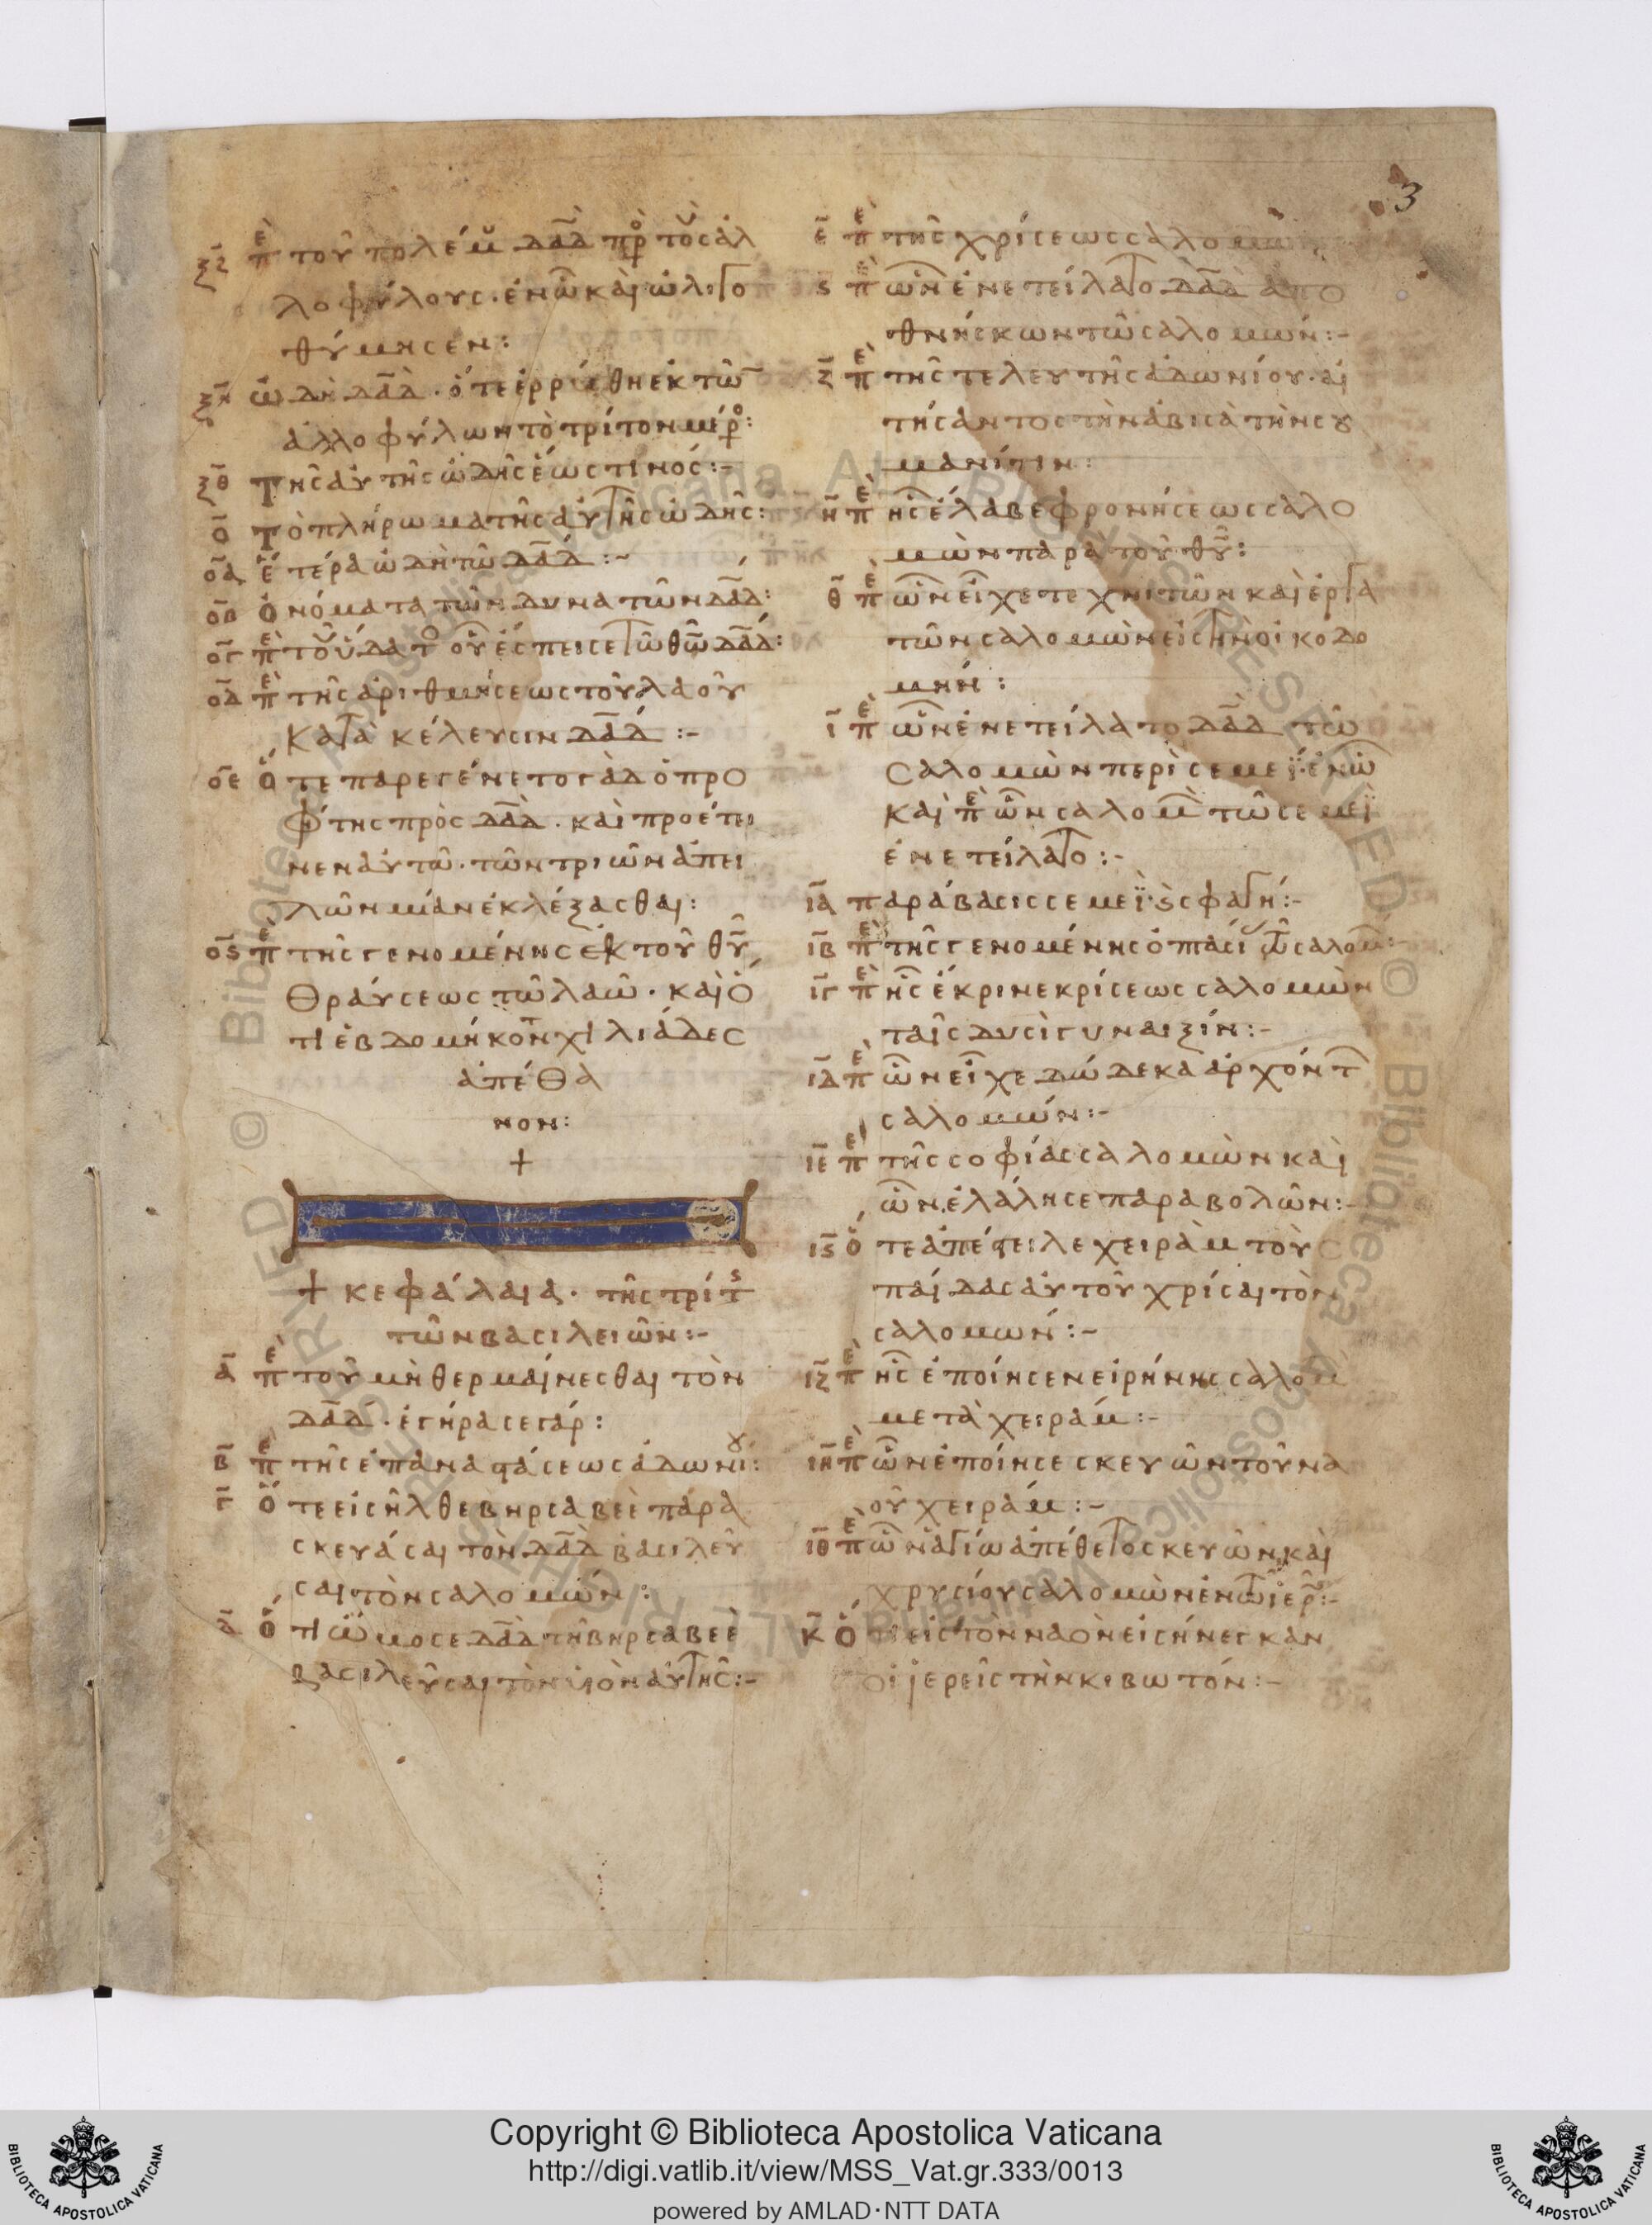 3
ξζ πε τοῦ πολέμου δαδ πρὸ τοὺς ἀλ
λοφύλους· ἐν ὧ καὶ ὠλιγο
θύμησεν:
ξη ὠδὴ δαδ· ὅτε ἐρρύσθη ἐκ τῶ
ἀλλοφύλων τὸ τρίτον μέρο:
ξθ Τῆς αὐτῆς ὠδῆς ἕως τινός:-
ο Τὸ πλήρωμα τῆς αὐτῆς ὠδῆς:
οα Ἑτέρα ὠδὴ τῶ δαδ:~
οβ Ὀνόματα τῶν δυνατῶν δαδ:
ογ πε τοῦ ὕδατο οὗ ἔσπεισε τῶ θω δαδ:
οδ πε τῆς ἀριθμήσεως τοῦ λαοῦ
Κατὰ κέλευσιν δαδ:-
οε Ὅτε παρεγένετο γὰδ ὁ προ
φήτης πρὸς δαδ. καὶ προέτει
νεν αὐτῶ· τῶν τριῶν ἀπει
λῶν μίαν ἐκλέξασθαι:
ος πε τῆς γενομένης ἐκ τοῦ θυ
Θραύσεως τῶ λαῶ· καὶ ὅ
τι ἑβδομήκοντ χιλιάδες
ἀπέθα
νον:
+
+ κεφάλαια· τῆς τρίτ
τῶν βασιλειῶν:-
α πε τοῦ μὴ θερμαίνεσθαι τὸν
δαδ· ἐγήρασε γάρ:
β πε τῆς ἐπαναστάσεως ἀδωνίου:
γ Ὅτε εἰσῆλθε βηρσαβεὲ παρα
σκευάσαι τὸν δαδ βασιλεῦ
σαι τὸν σαλομών:
δ Ὅτι ὤμοσε δαδ τῆ βηρσαβεὲ
βασιλεῦσαι τὸν υἱὸν αὐτῆς:-
ε πε τῆς χρίσεως σαλομών
ς πε ὧν ἐνετείλατο δαδ ἀπο
θνήσκων τῶ σαλομών:-
ζ πε τῆς τελευτῆς ἀδωνίου· αἰ
τήσαντος τὴν ἀβισὰ τὴν σου
μανίτιν:
η πε ἧς ἔλαβε φρονήσεως σαλο
μὼν παρὰ τοῦ θυ:
θ πε ὧν εἶχε τεχνιτῶν καὶ ἐργα
τῶν σαλομὼν εἰς τὴν οἰκοδο
μήν:
ι πε ὧν ἐνετείλατο δαδ τῶ
Σαλομὼν περὶ σεμεΐ· ἐν ὧ
καὶ πε ὧν σαλομ τῶ σεμεῒ
ἐνετείλατο:-
ια παράβασις σεμεῒ ς σφαγή:-
ιβ πε τῆς γενομένης ὀπτασί τῶ σαλομ:-
ιγ πε ἧς ἔκρινε κρίσεως σαλομὼν
ταῖς δυσὶ γυναιξίν:-
ιδ πε ὧν εἶχε δώδεκα ἀρχόντ
σαλομών:-
ιε πε τῆς σοφίας σαλομὼν καὶ
ὧν ἐλάλησε παραβολῶν:-
ις Ὅτε ἀπέστειλε χειρὰμ τοὺς
παῖδας αὐτοῦ χρίσαι τὸν
σαλομών:-
ιζ πε ἧς ἐποίησεν εἰρήνης σαλομ
μετὰ χειράμ:-
ιη πε ὧν ἐποίησε σκευῶν τοῦ να
οῦ χειράμ:-
ιθ πε ὧν ἁγίω ἀπέθετο σκευῶν καὶ
χρυσίου σαλομὼν ἐν τῶ ἱερ:-
κ Ὅτε εἰς τὸν ναὸν εἰσήνεγκαν
οἱ ἱερεῖς τὴν κιβωτόν:-
Copyright © Biblioteca Apostolica Vaticana
http://digi.vatlib.it/view/MSS_Vat.gr.333/0013
powered by AMLAD·NTT DATA
BIBLIOTECA APOSTOLICA VATICANA
BIBLIOTECA APOSTOLICA VATICANA